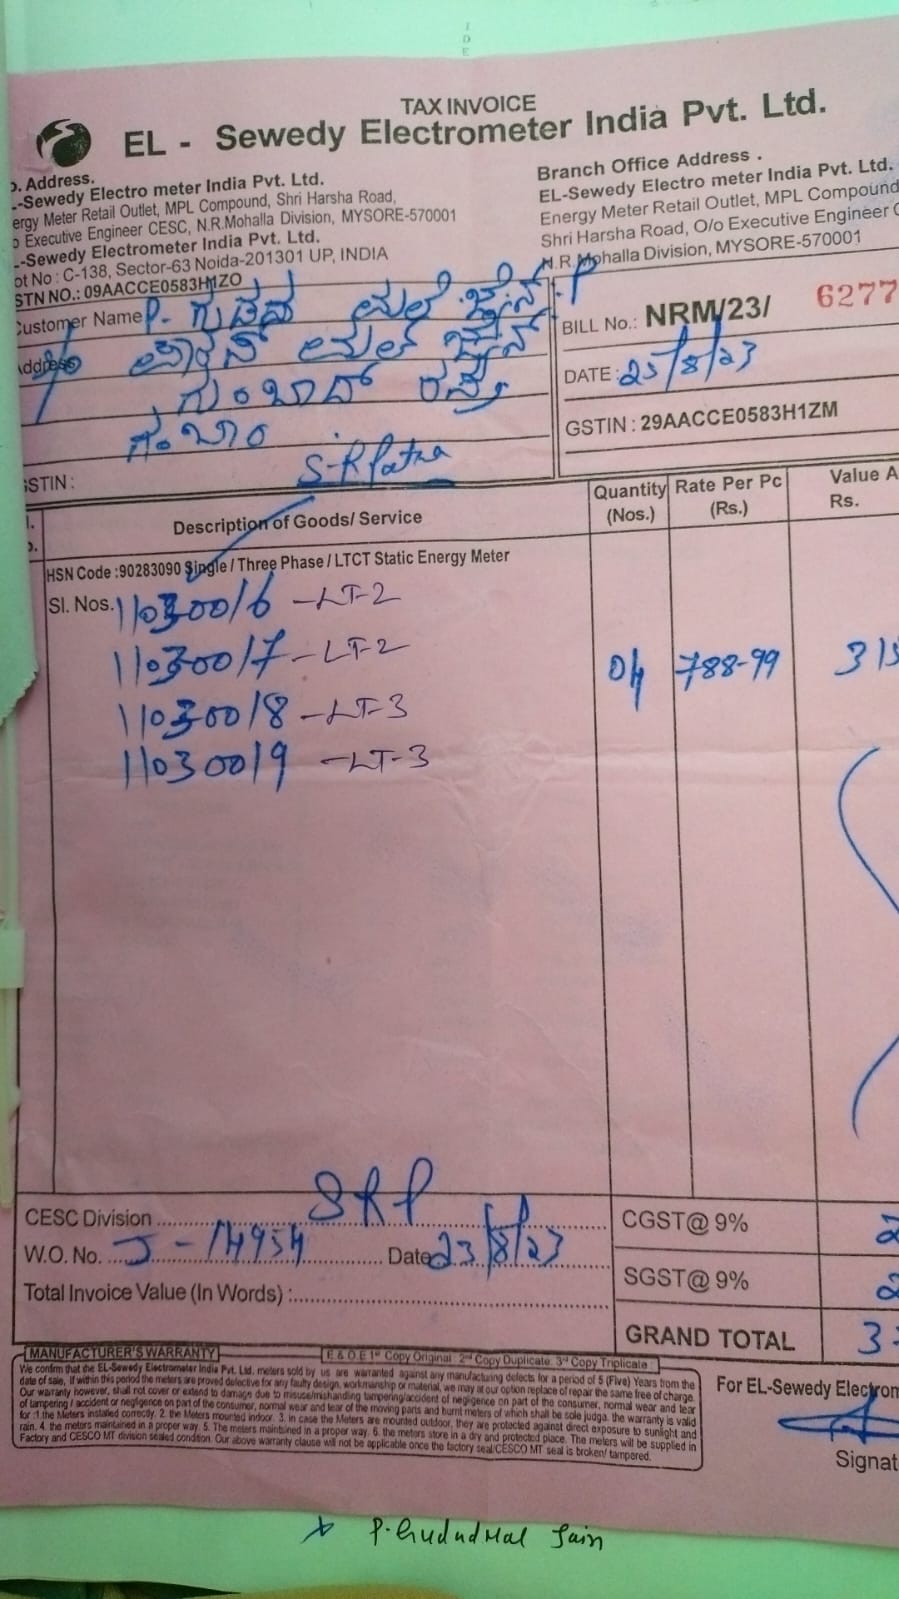 TAX INVOICE
EL - Sewedy Electrometer India Pvt. Ltd.
. Address.
-Sewedy Electro meter India Pvt. Ltd.
ergy Meter Retail Outlet, MPL Compound, Shri Harsha Road,
Executive Engineer CESC, N.R.Mohalla Division, MYSORE-570001
-Sewedy Electrometer India Pvt. Ltd.
ot No : C-138, Sector-63 Noida-201301 UP, INDIA
STN NO.: 09AACCE0583H1ZO
Branch Office Address .
EL-Sewedy Electro meter India Pvt. Ltd.
Energy Meter Retail Outlet, MPL Compound
Shri Harsha Road, O/o Executive Engineer C
N.R.Mohalla Division, MYSORE-570001
ustomer Name P.
BILL No.: NRM/23/ 6277
ddress
DATE : 25/8/23
GSTIN : 29AACCE0583H1ZM
STIN : S-R Patna
Description of Goods/ Service
Quantity (Nos.)
Rate Per Pc (Rs.)
Value A
Rs.
HSN Code :90283090 Single / Three Phase / LTCT Static Energy Meter
Sl. Nos. 11030016 - LT-2
11030017 - LT-2
04 788-99 315
11030018 - LT-3
11030019 - LT-3
CESC Division SRP
CGST@ 9% 2
W.O. No. J - 14954 Date 23/8/23
SGST@ 9% 2
Total Invoice Value (In Words) :
GRAND TOTAL 3
MANUFACTURER'S WARRANTY
E & O E 1st Copy Original 2nd Copy Duplicate 3rd Copy Triplicate
We confirm that the EL-Sewedy Electrometer India Pvt. Ltd. meters sold by us are warranted against any manufacturing defects for a period of 5 (Five) Years from the
date of sale, If within this period the meters are proved defective for any faulty design, workmanship or material, we may at our option replace of repair the same free of charge.
Our warranty however, shall not cover or extend to damage due to misuse/mishandling tampering/accident of negligence on part of the consumer, normal wear and tear
of tampering / accident or negligence on part of the consumer, normal wear and tear of the moving parts and burnt meters of which shall be sole judga. the warranty is valid
for :1 the Meters installed correctly. 2. the Meters mounted indoor. 3. in case the Meters are mounted outdoor, they are protected against direct exposure to sunlight and
rain. 4. the meters maintained in a proper way. 5. The meters maintained in a proper way. 6. the meters store in a dry and protected place. The meters will be supplied in
Factory and CESCO MT division sealed condition. Our above warranty clause will not be applicable once the factory seal/CESCO MT seal is broken/ tampered.
For EL-Sewedy Electrom
Signat
P. Gududmal Jain